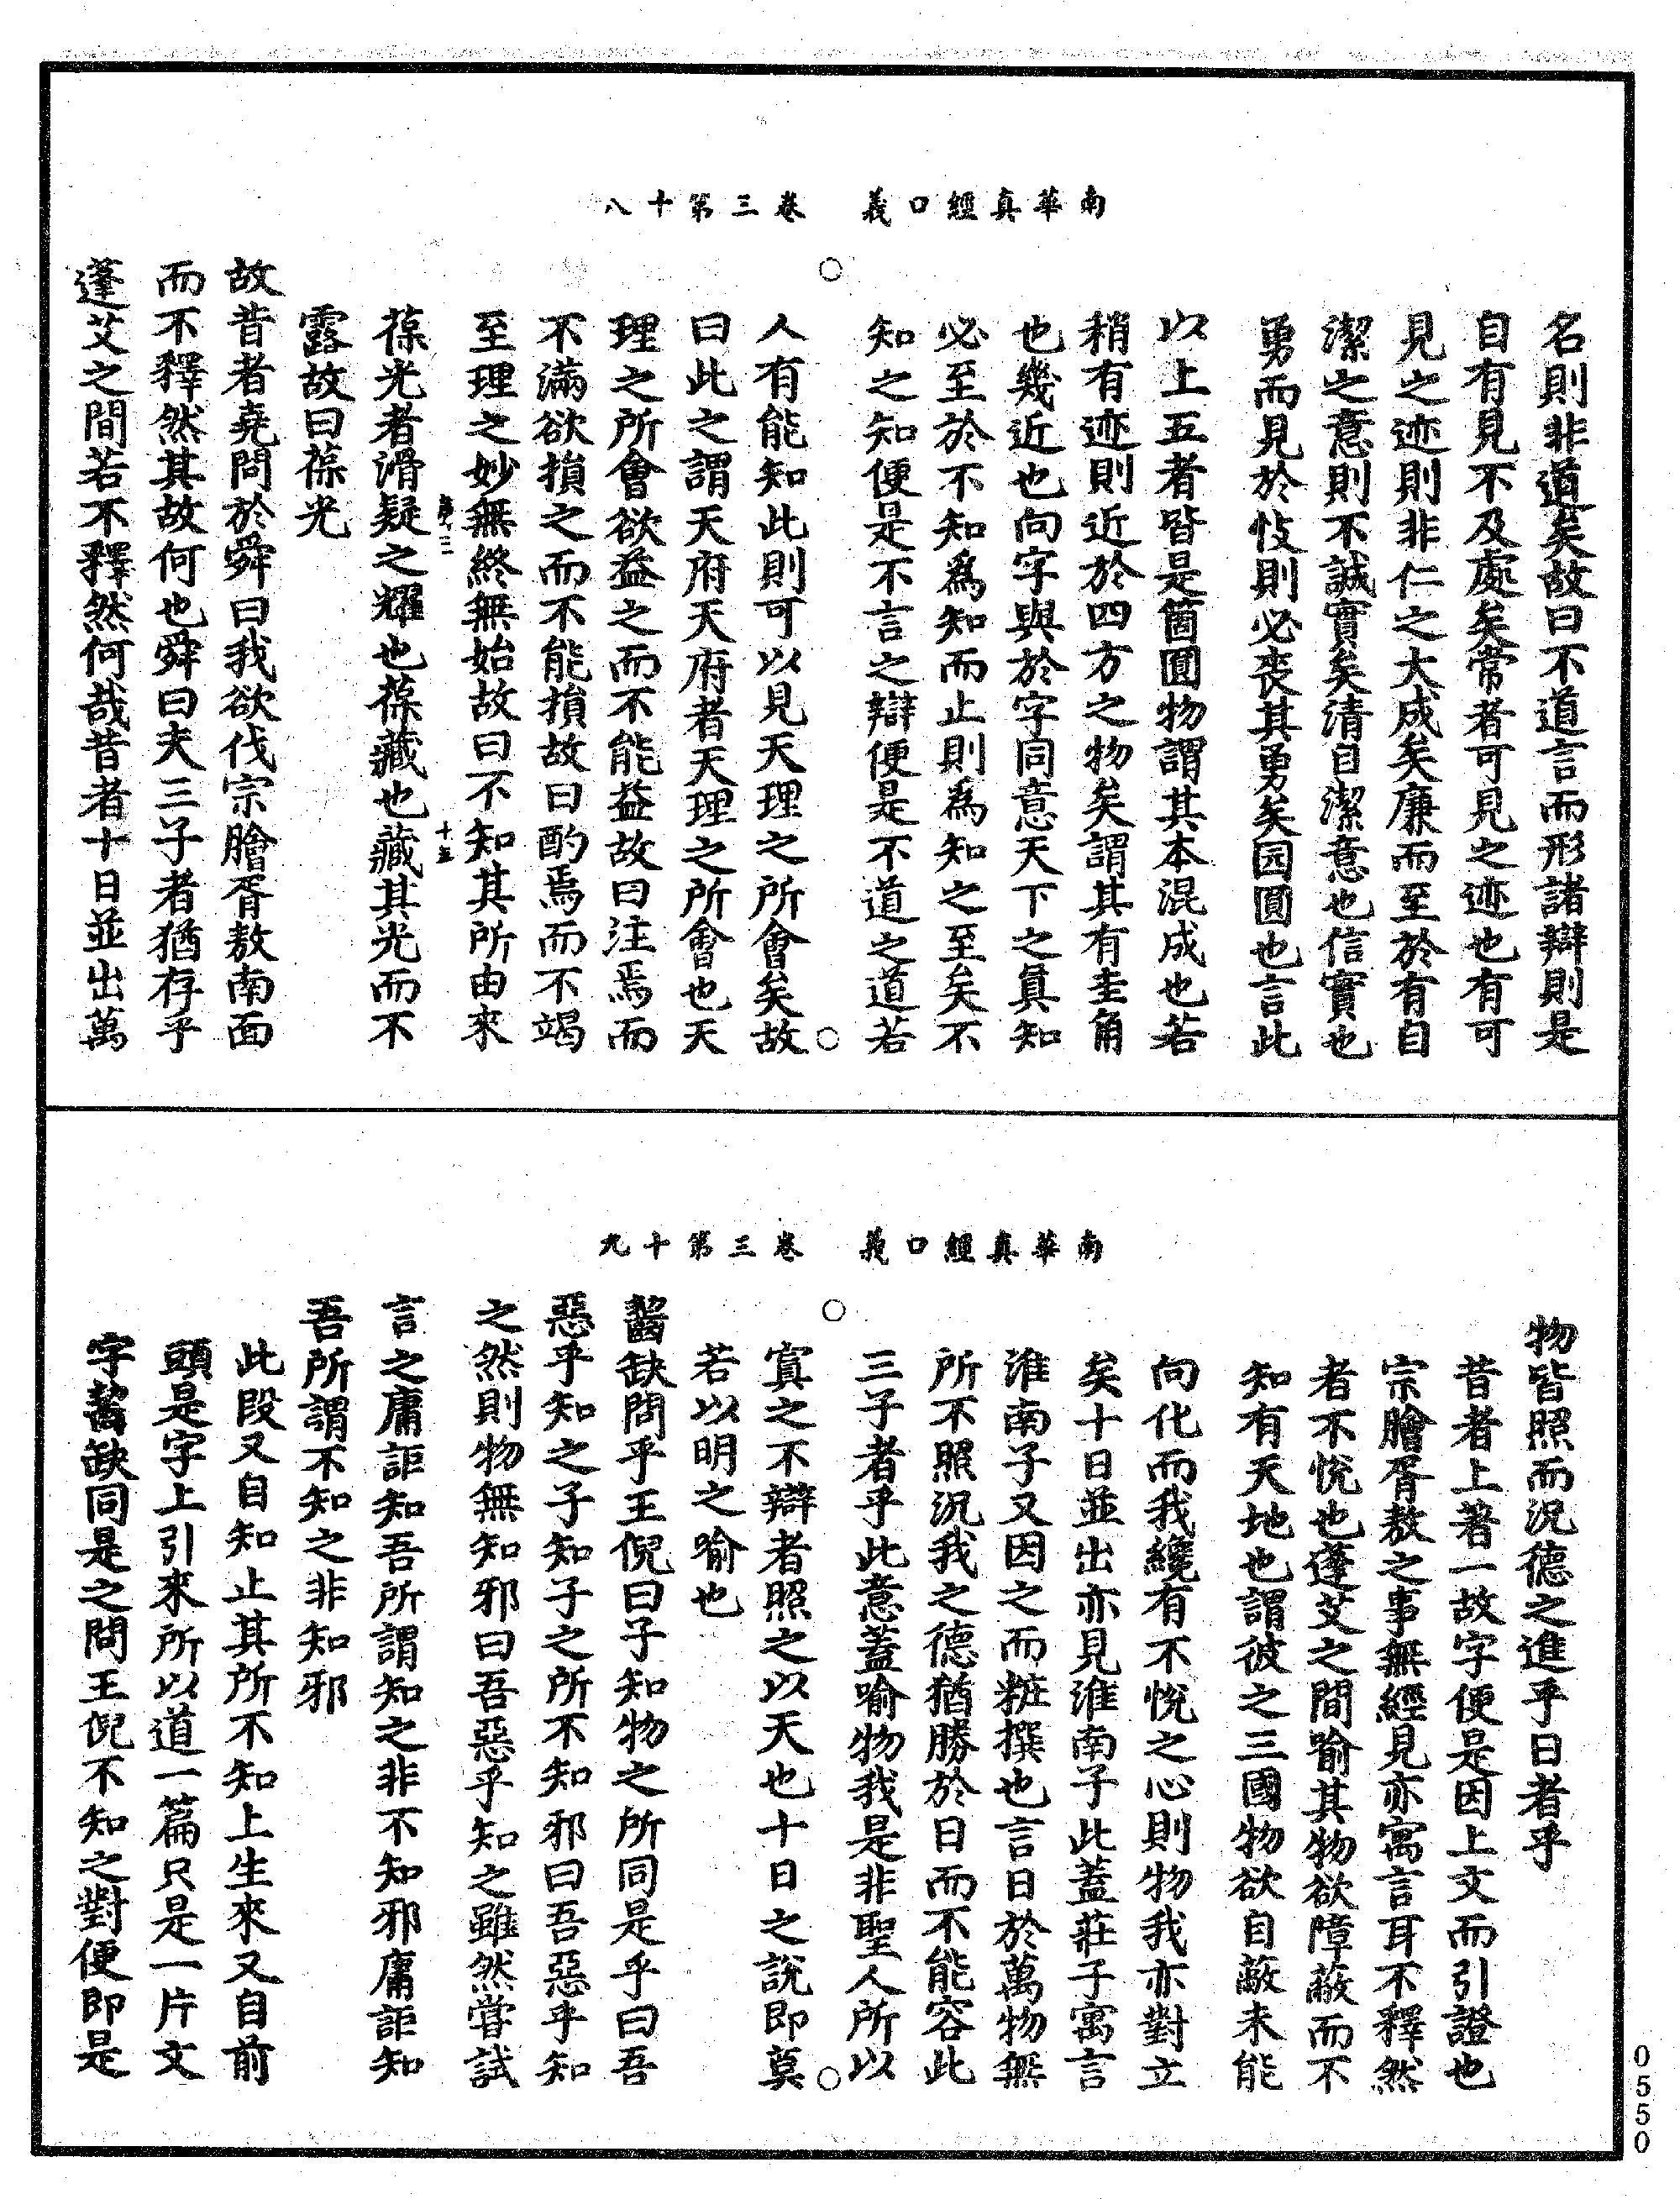 南華真經口義　卷三第十八
名則非道矣故曰不道言而形諸辯則是
自有見不及處矣常者可見之迹也有可
見之迹則非仁之大成矣廉而至於有自
潔之意則不誠實矣清自潔意也信實也
勇而見於忮則必喪其勇矣园圓也言此
以上五者皆是箇圓物謂其本混成也若
稍有迹則近於四方之物矣謂其有圭角
也幾近也向字與於字同意天下之真知
必至於不知爲知而止則爲知之至矣不
知之知便是不言之辯便是不道之道若
人有能知此則可以見天理之所會矣故
曰此之謂天府天府者天理之所會也天
理之所會欲益之而不能益故曰注焉而
不滿欲損之而不能損故曰酌焉而不竭
至理之妙無終無始故曰不知其所由來
葆光者滑疑之耀也葆藏也藏其光而不
露故曰葆光
故昔者堯問於舜曰我欲伐宗膾胥敖南面
而不釋然其故何也舜曰夫三子者猶存乎
蓬艾之間若不釋然何哉昔者十日並出萬
南華真經口義　卷三第十九
物皆照而況德之進乎日者乎
昔者上著一故字便是因上文而引證也
宗膾胥敖之事無經見亦寓言耳不釋然
者不悅也蓬艾之間喻其物欲障蔽而不
知有天地也謂彼之三國物欲自蔽未能
向化而我纔有不悅之心則物我亦對立
矣十日並出亦見淮南子此蓋莊子寓言
淮南子又因之而粧撰也言日於萬物無
所不照況我之德猶勝於日而不能容此
三子者乎此意蓋喻物我是非聖人所以
寘之不辯者照之以天也十日之說即莫
若以明之喻也
齧缺問乎王倪曰子知物之所同是乎曰吾
惡乎知之子知子之所不知邪曰吾惡乎知
之然則物無知邪曰吾惡乎知之雖然嘗試
言之庸詎知吾所謂知之非不知邪庸詎知
吾所謂不知之非知邪
此段又自知止其所不知上生來又自前
頭是字上引來所以道一篇只是一片文
字齧缺同是之問王倪不知之對便即是
0550